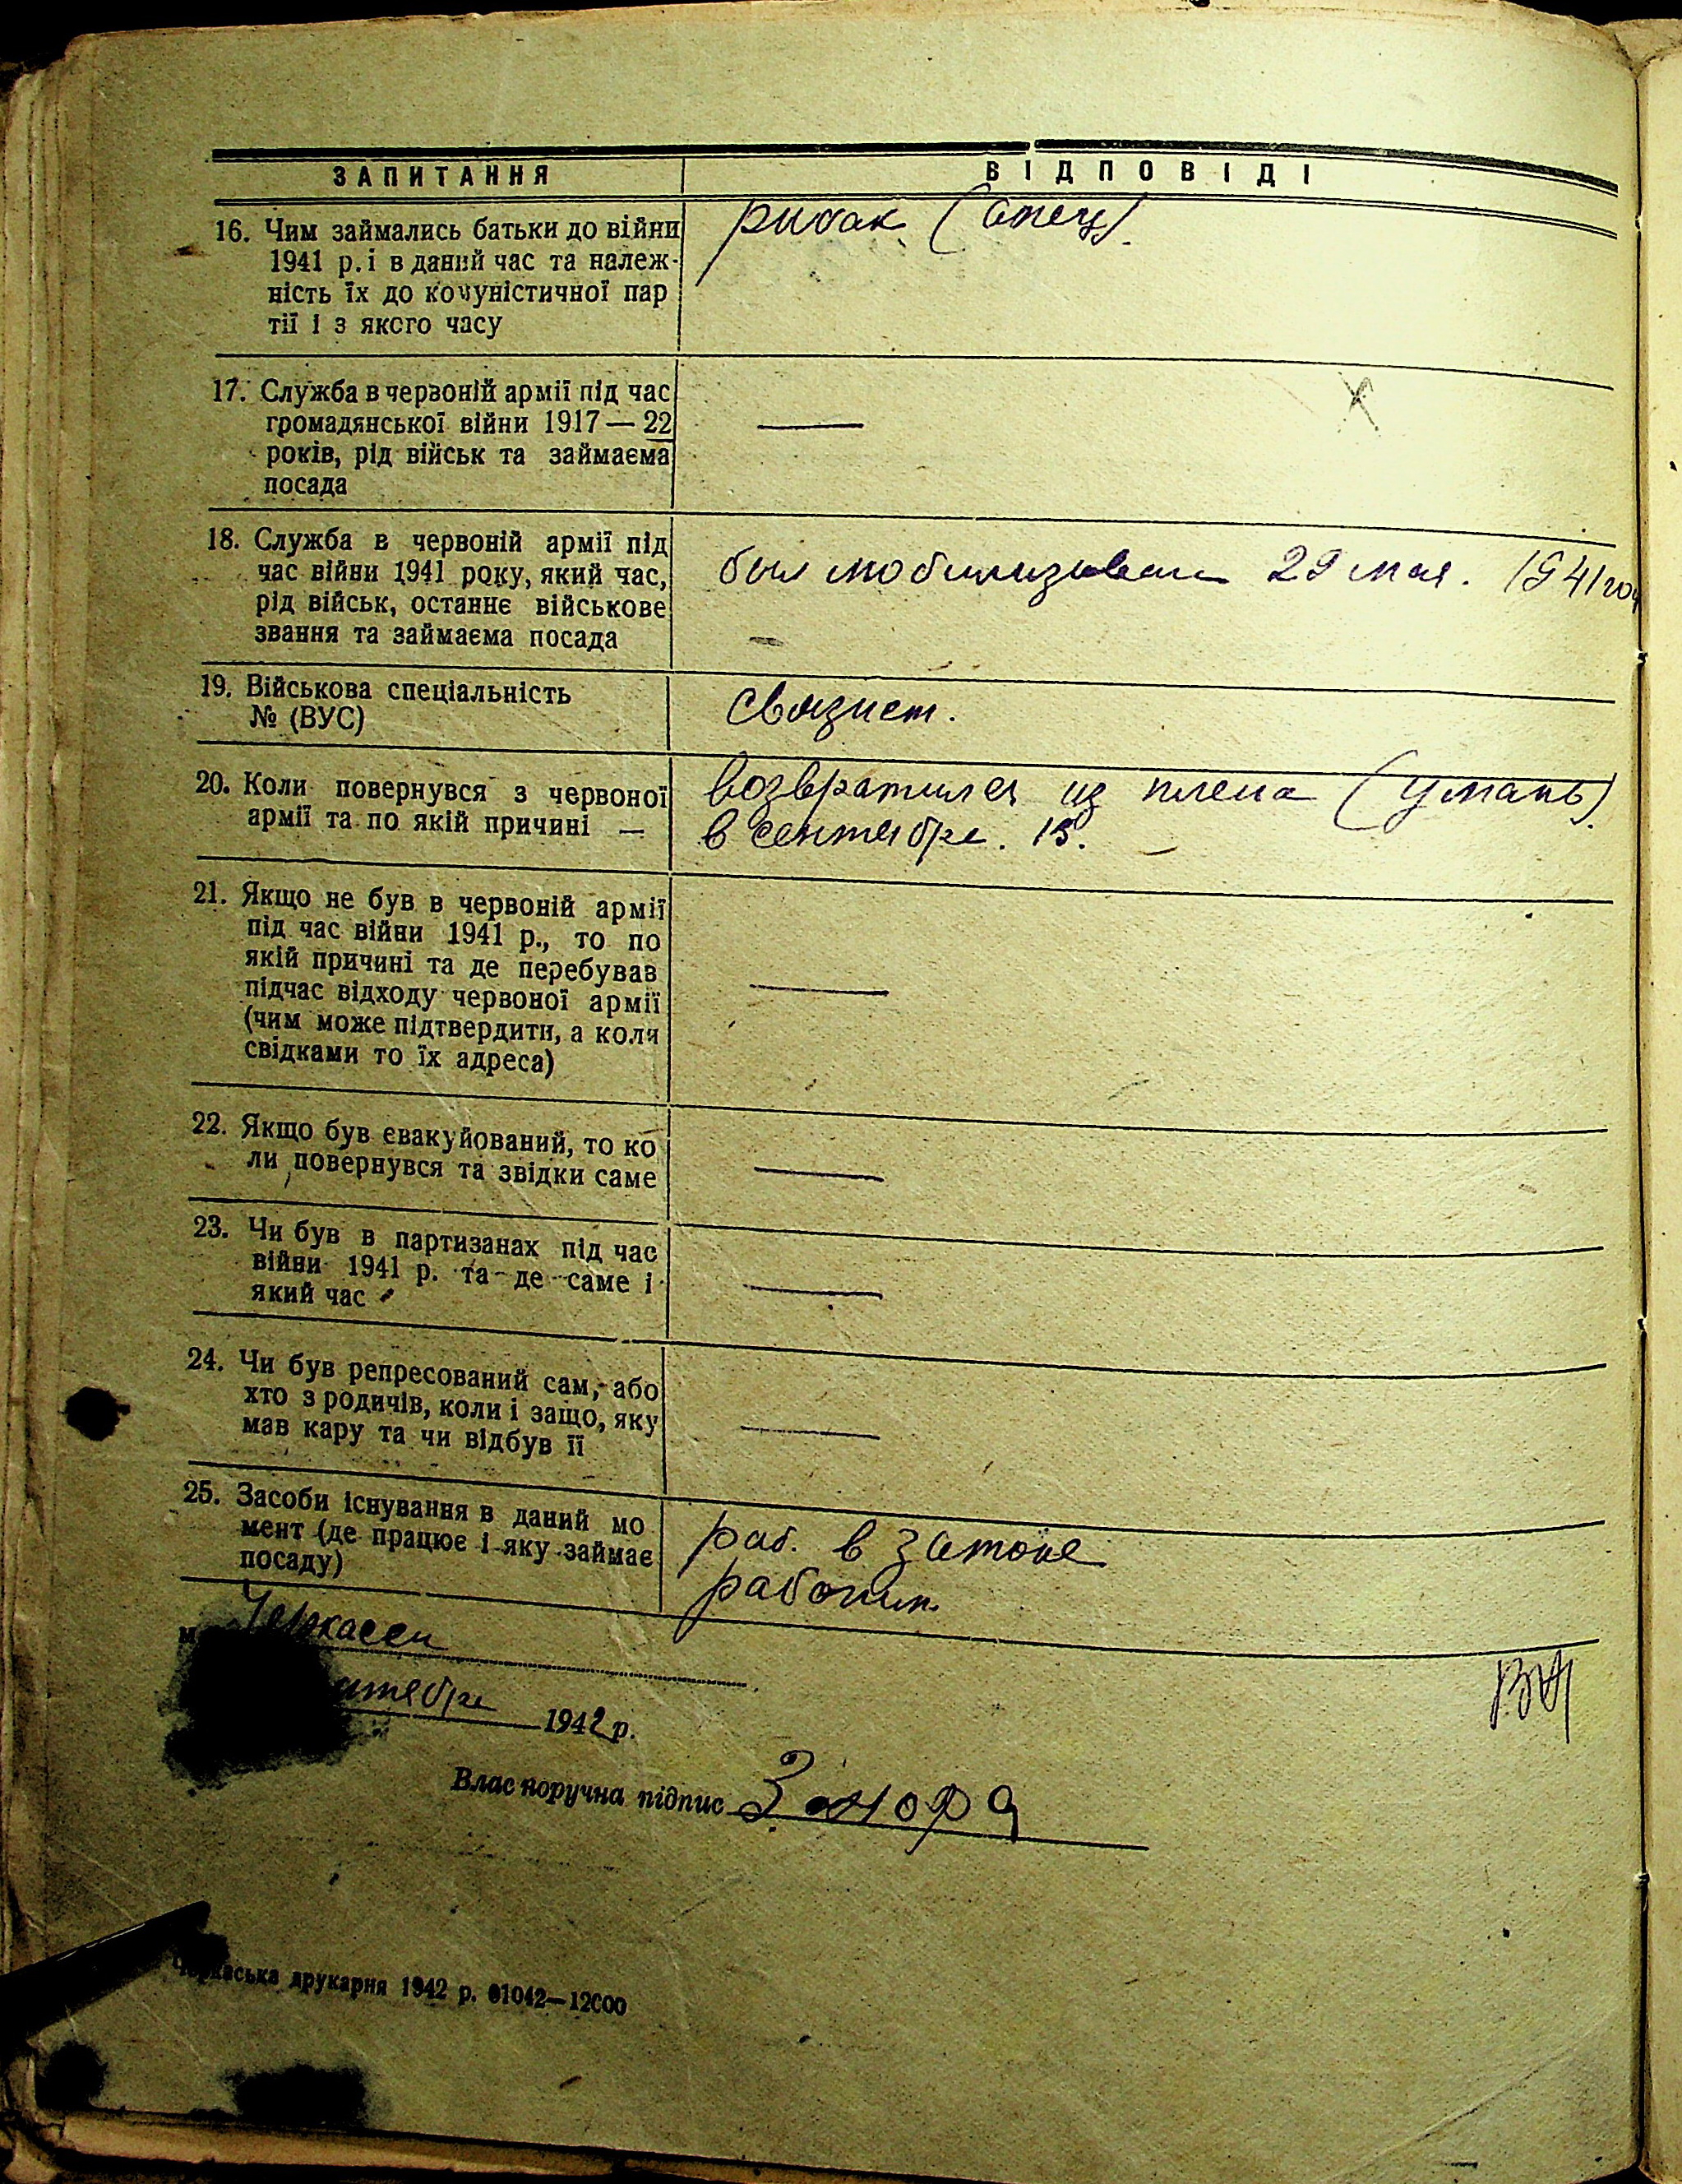 ЗАПИТАННЯ ВІДПОВІДІ
16. Чим займались батьки до війни
1941 р. і в даний час та належ-
ність їх до комуністичної пар
тії і з якого часу
рибак (отец).
17. Служба в червоній армії під час
громадянської війни 1917 — 22
років, рід військ та займаєма
посада
—
18. Служба в червоній армії під
час війни 1941 року, який час,
рід військ, останнє військове
звання та займаєма посада
был мобилизован 29 мая. 1941 год
19. Військова спеціальність
№ (ВУС)
Связист.
20. Коли повернувся з червоної
армії та по якій причині —
возвратился из плена (Умань).
в сентябре. 15.
21. Якщо не був в червоній армії
під час війни 1941 р., то по
якій причині та де перебував
підчас відходу червоної армії
(чим може підтвердити, а коли
свідками то їх адреса)
—
22. Якщо був евакуйований, то ко
ли повернувся та звідки саме
—
23. Чи був в партизанах під час
війни 1941 р. та де саме і
який час
—
24. Чи був репресований сам, або
хто з родичів, коли і защо, яку
мав кару та чи відбув її
—
25. Засоби існування в даний мо
мент (де працює і яку займає
посаду)
раб. в затоне
рабочим.
м. Черкассы
1942 р.
Власноручна підпис
Черкаська друкарня 1942 р. 01042—12000